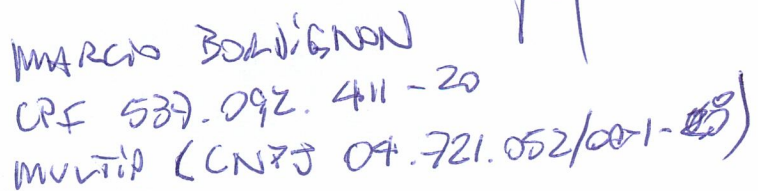 MARCIO BORDIGNON
CPF 537.092.411-20
MULTIP (CNPJ 04.721.052/0001-